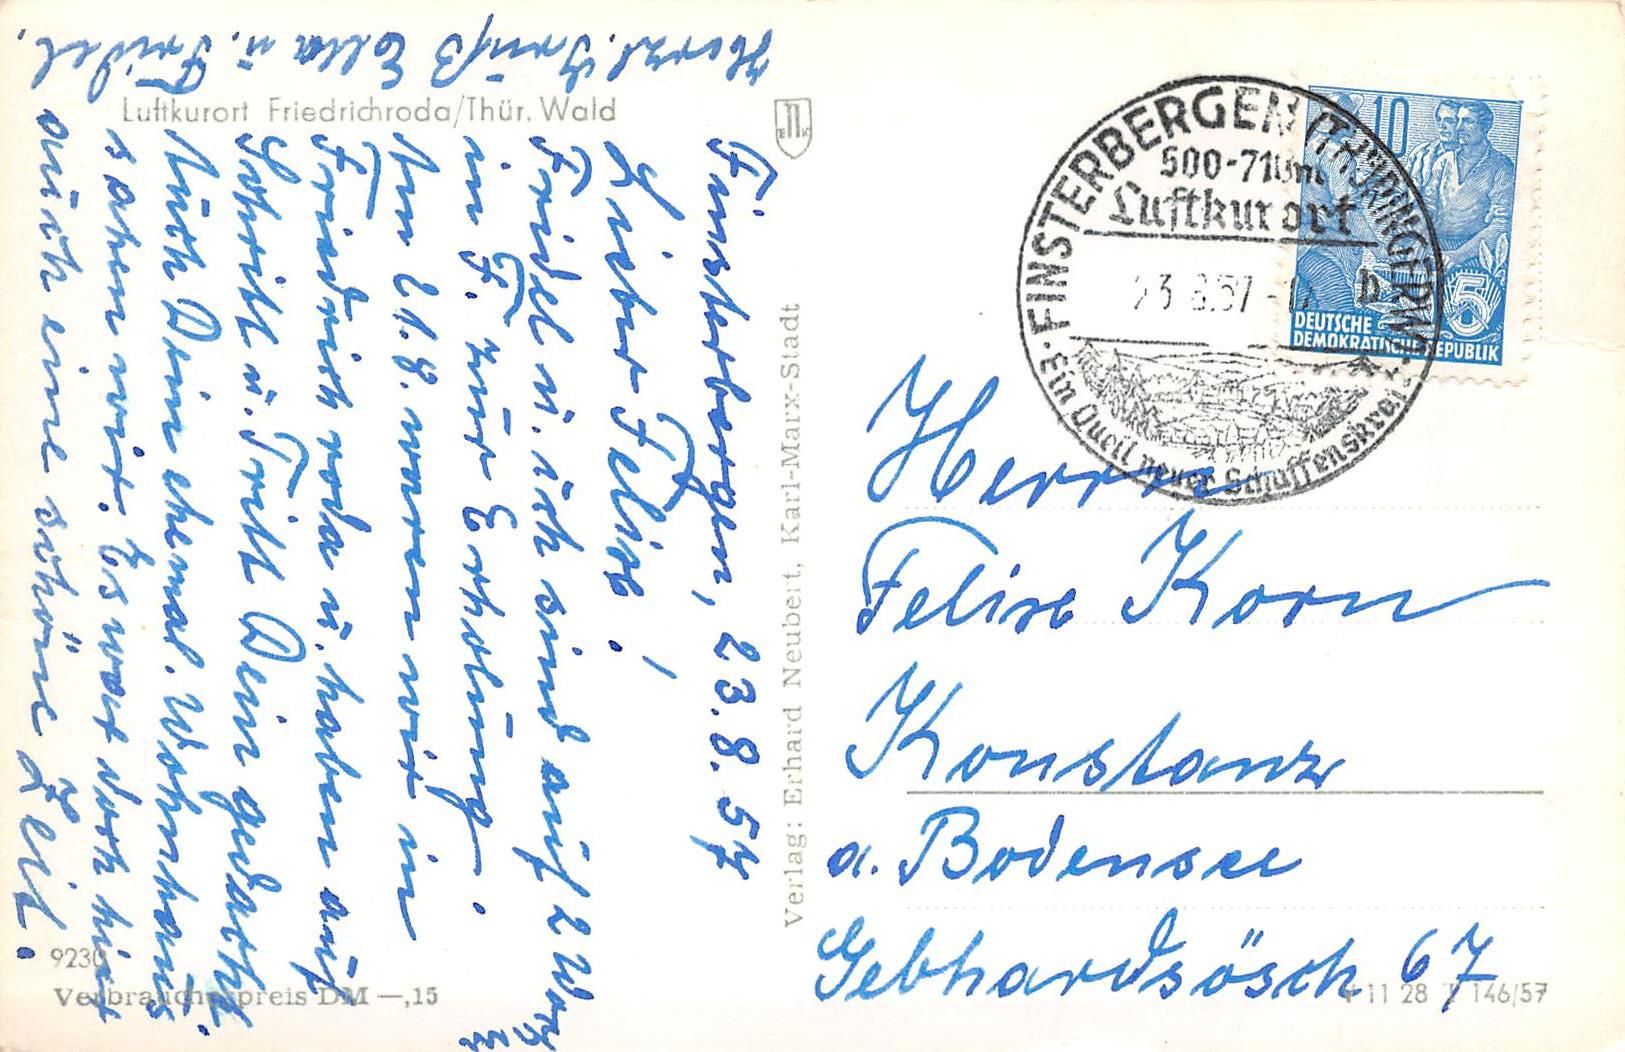 Luftkurort Friedrichroda/Thür. Wald
Finsterbergen, 23.8.57
Lieber Felix!
Fridel u. ich sind auf 2 Woch
in F. zur Erholung.
Am 21.8. waren wir in
Friedrich roda u. haben auf
Schritt u. Tritt Dein gedacht.
Auch Dein ehemal. Wohnhaus
sahen wir. Es war doch hier
auch eine schöne Zeit.
Herzl. Grüß Ella u. Fridel.
Verlag: Erhard Neubert, Karl-Marx-Stadt
9230
Verbraucherpreis DM —,15
FINSTERBERGEN (THÜRINGER W.)
500-710m
Luftkurort
23.8.57
Ein Quell neuer Schaffenskraft
10
5
DEUTSCHE
DEMOKRATISCHE REPUBLIK
Herrn
Felix Korn
Konstanz
a. Bodensee
Gebhardsösch 67
11 28 146/57